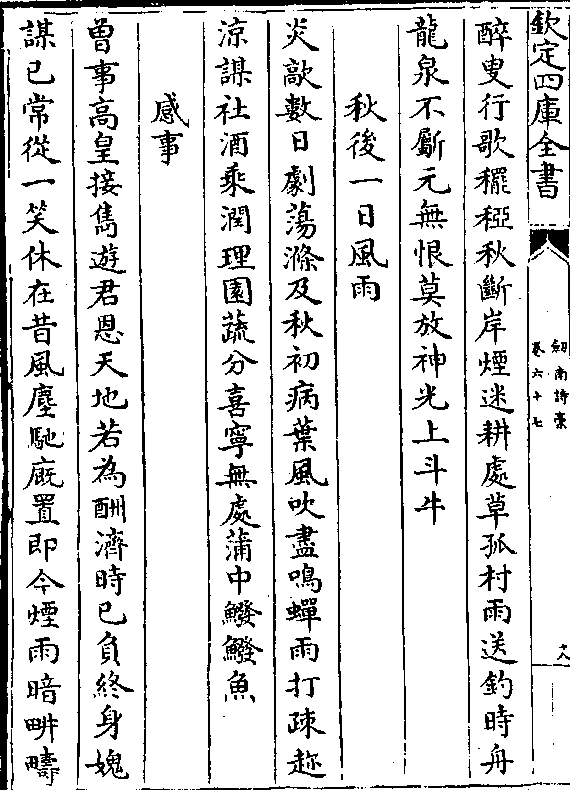 欽定四庫全書
劍南詩稾
卷六十七
十八
醉叟行歌䆉稏秋斷岸煙迷耕處草孤村雨送釣時舟
龍泉不斸元無恨莫放神光上斗牛
秋後一日風雨
炎歊數日劇蕩滌及秋初病葉風吹盡鳴蟬雨打疎趂
涼謀社酒乘潤理園蔬分喜寧無處蒲中鱍鱍魚
感事
曾事高皇接雋遊君恩天地若為酬濟時已負終身媿
謀已常從一笑休在昔風塵馳廐置即今煙雨暗畊疇